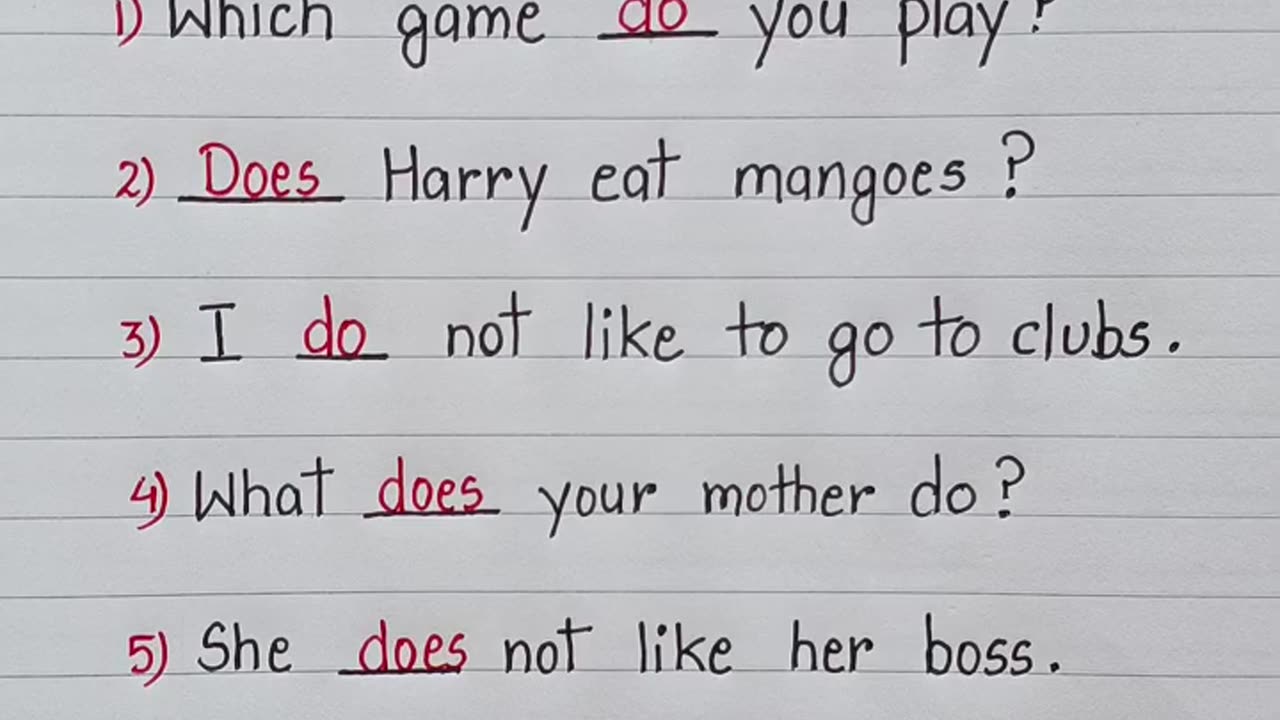 1) Which game do you play?
2) Does Harry eat mangoes ?
3) I do not like to go to clubs.
4) What does your mother do?
5) She does not like her boss.